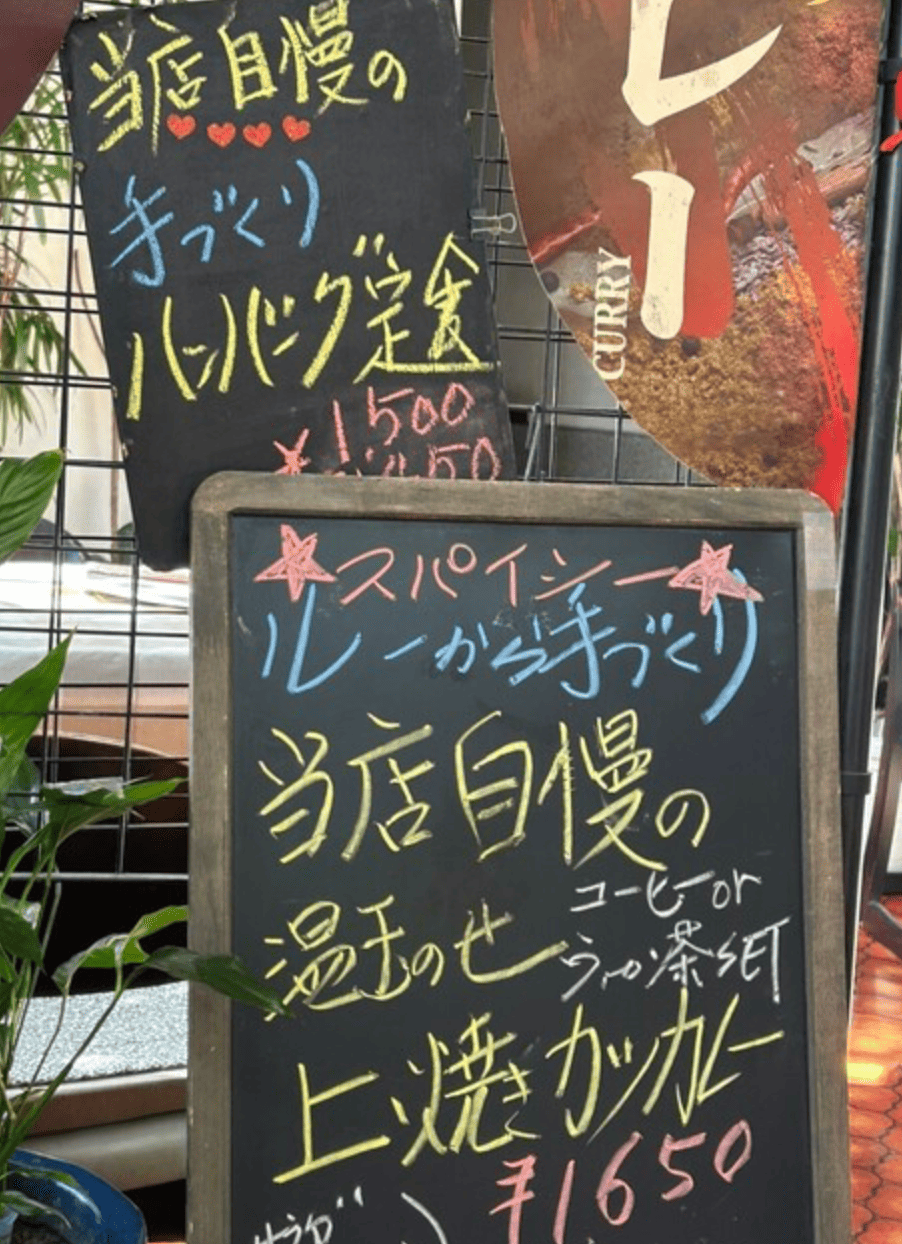 当店自慢の
手づくり
ハンバーグ定食
¥1500
レー
CURRY
スパイシー
ルーから手づくり
当店自慢の
温玉のせ
コーヒーor
茶SET
上焼きカツカレー
¥1650
サラダ